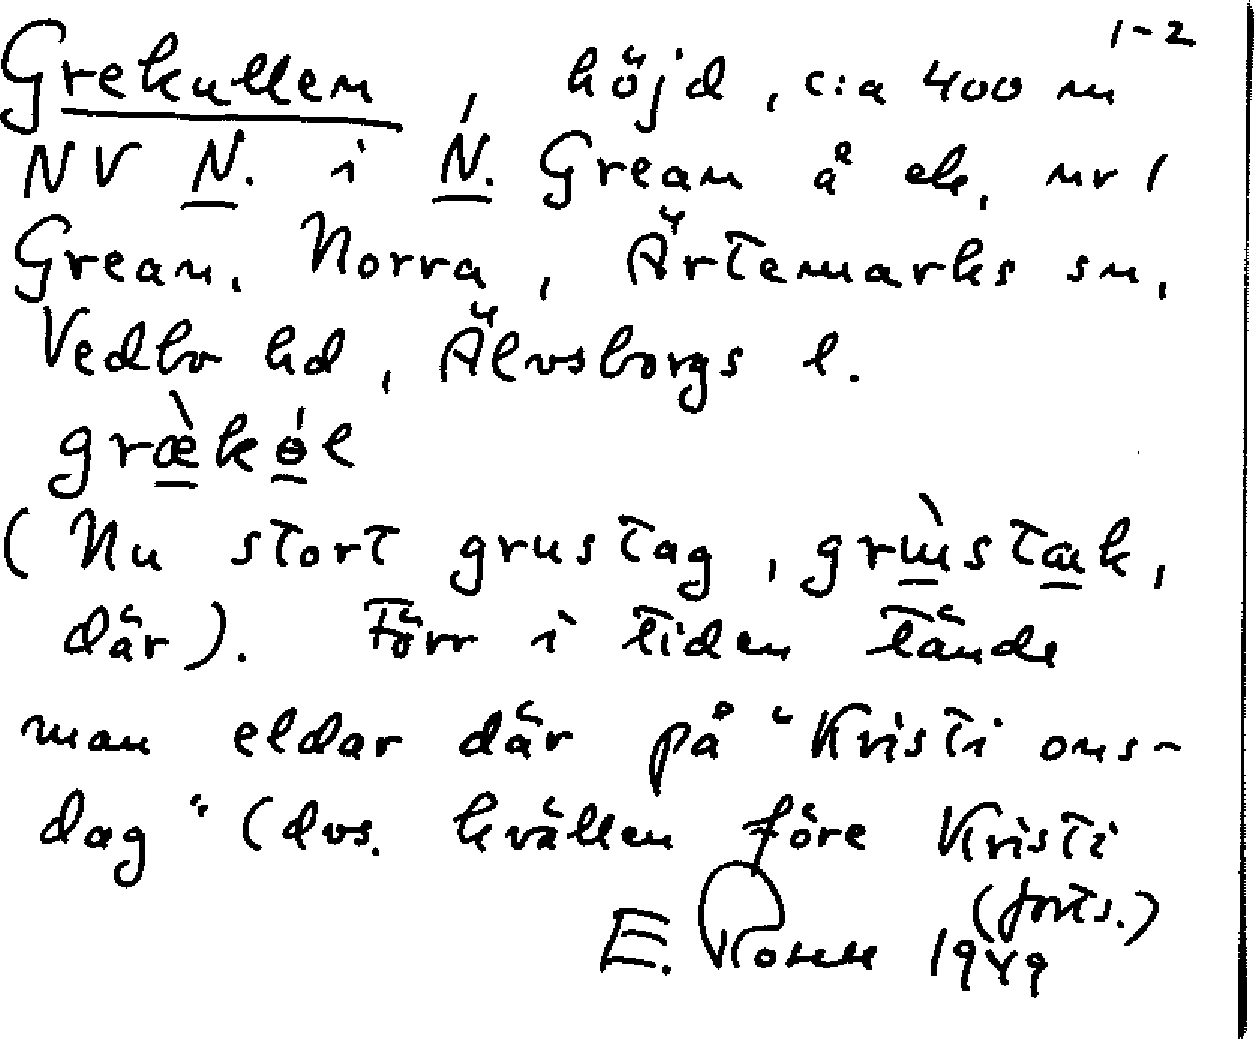 1-2
Grekullen, höjd, c:a 400 m
NV N. i N. Grean å ek. nr 1
Grean, Norra, Ärtemarks sn,
Vedbo hd, Älvsborgs l.
græ̀kɵ́l
(Nu stort grustag, grùstæk,
där). Förr i tiden tände
man eldar där på "Kristi ons-
dag" (dvs. kvällen före Kristi
(forts.)
E. Rosell 1949